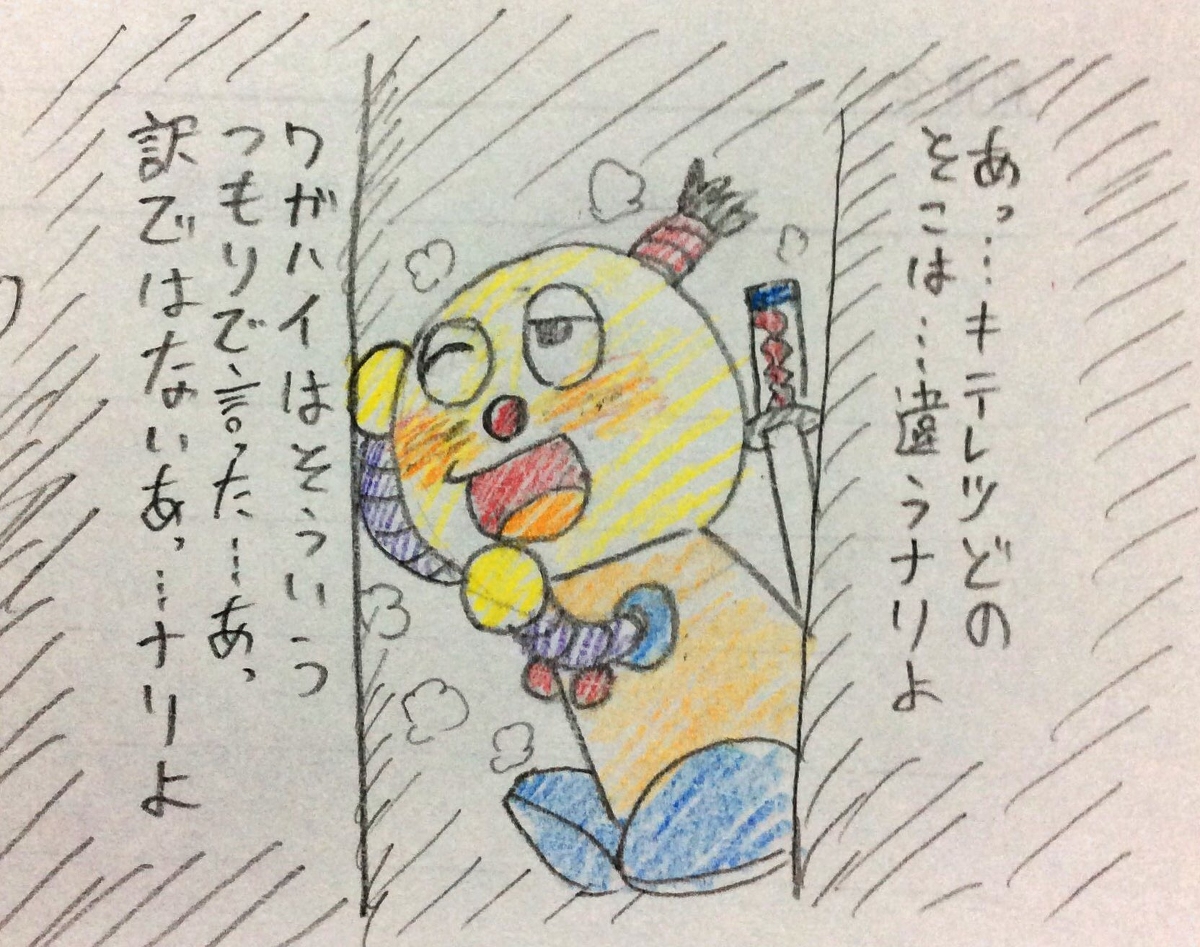 あっ…キテレツどの
そこは…違うナリよ
ワガハイはそういうつ
つもりで言った…あっ
訳ではないあっ…ナリよ